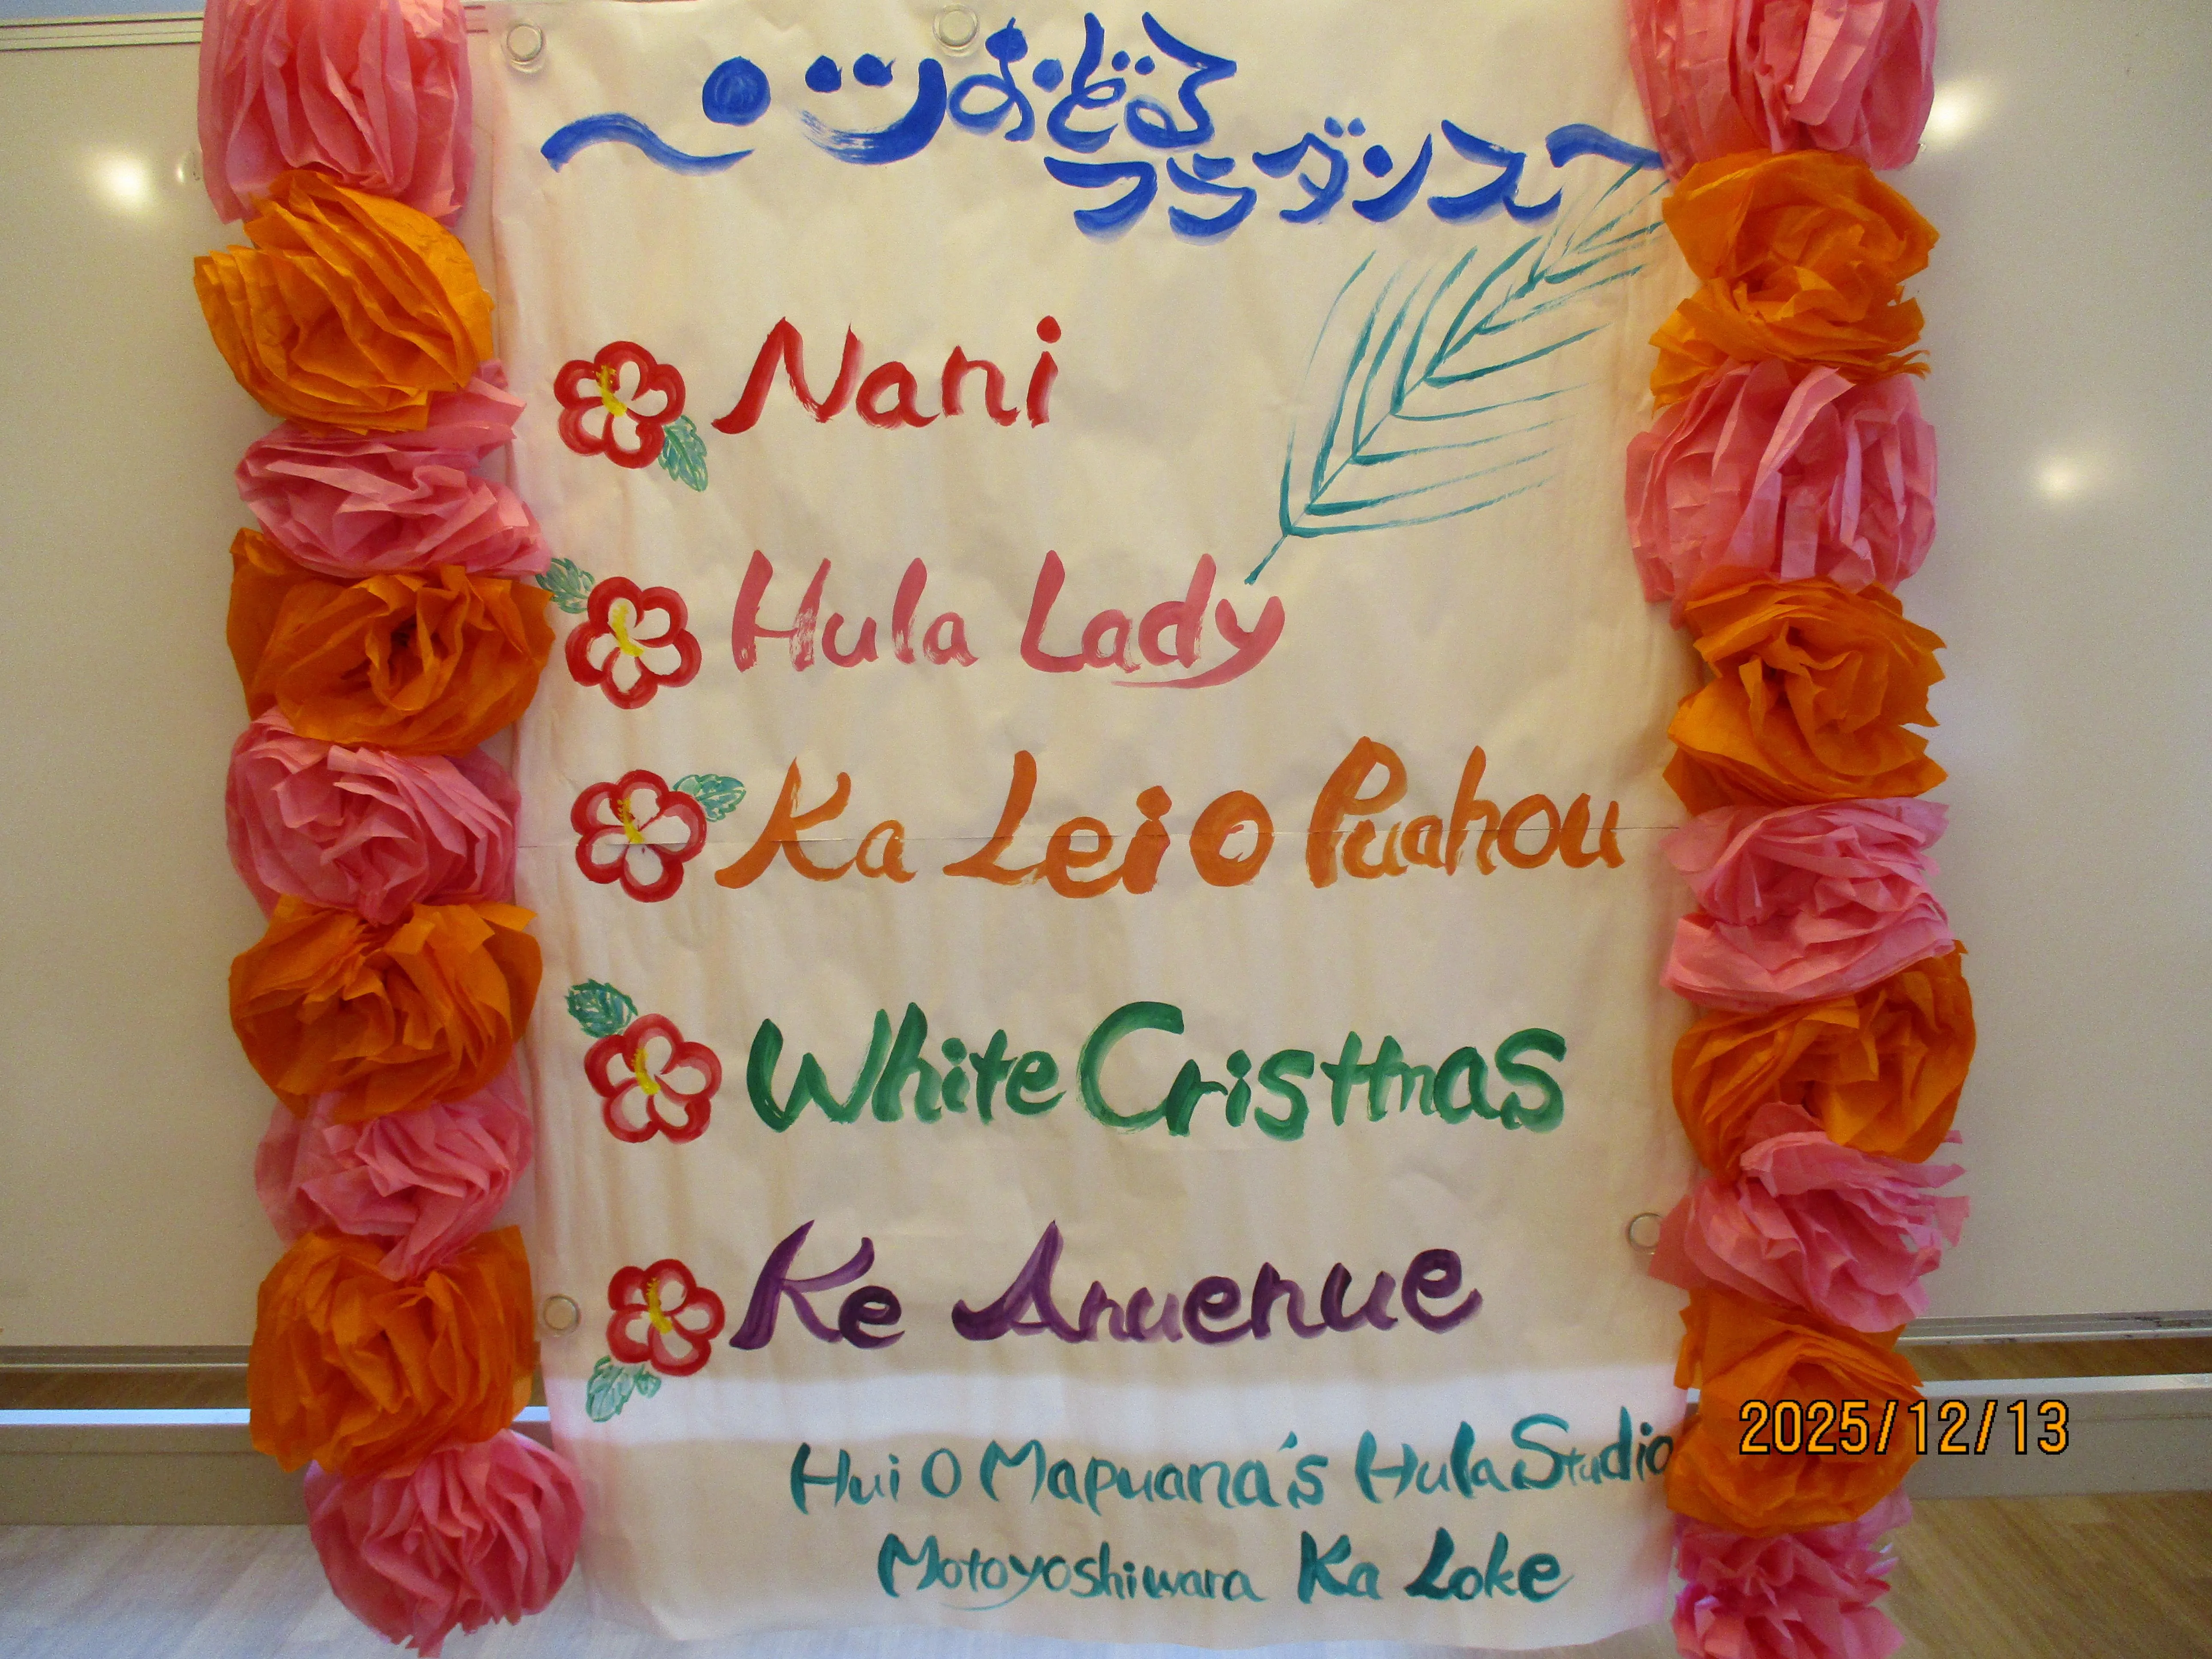 〜・ツおどる
フラダンス〜
Nani
Hula Lady
Ka Lei O Puahou
White Cristmas
Ke Anuenue
Hui O Mapuana's Hula Studio
Motoyoshiwara Ka Loke
2025/12/13